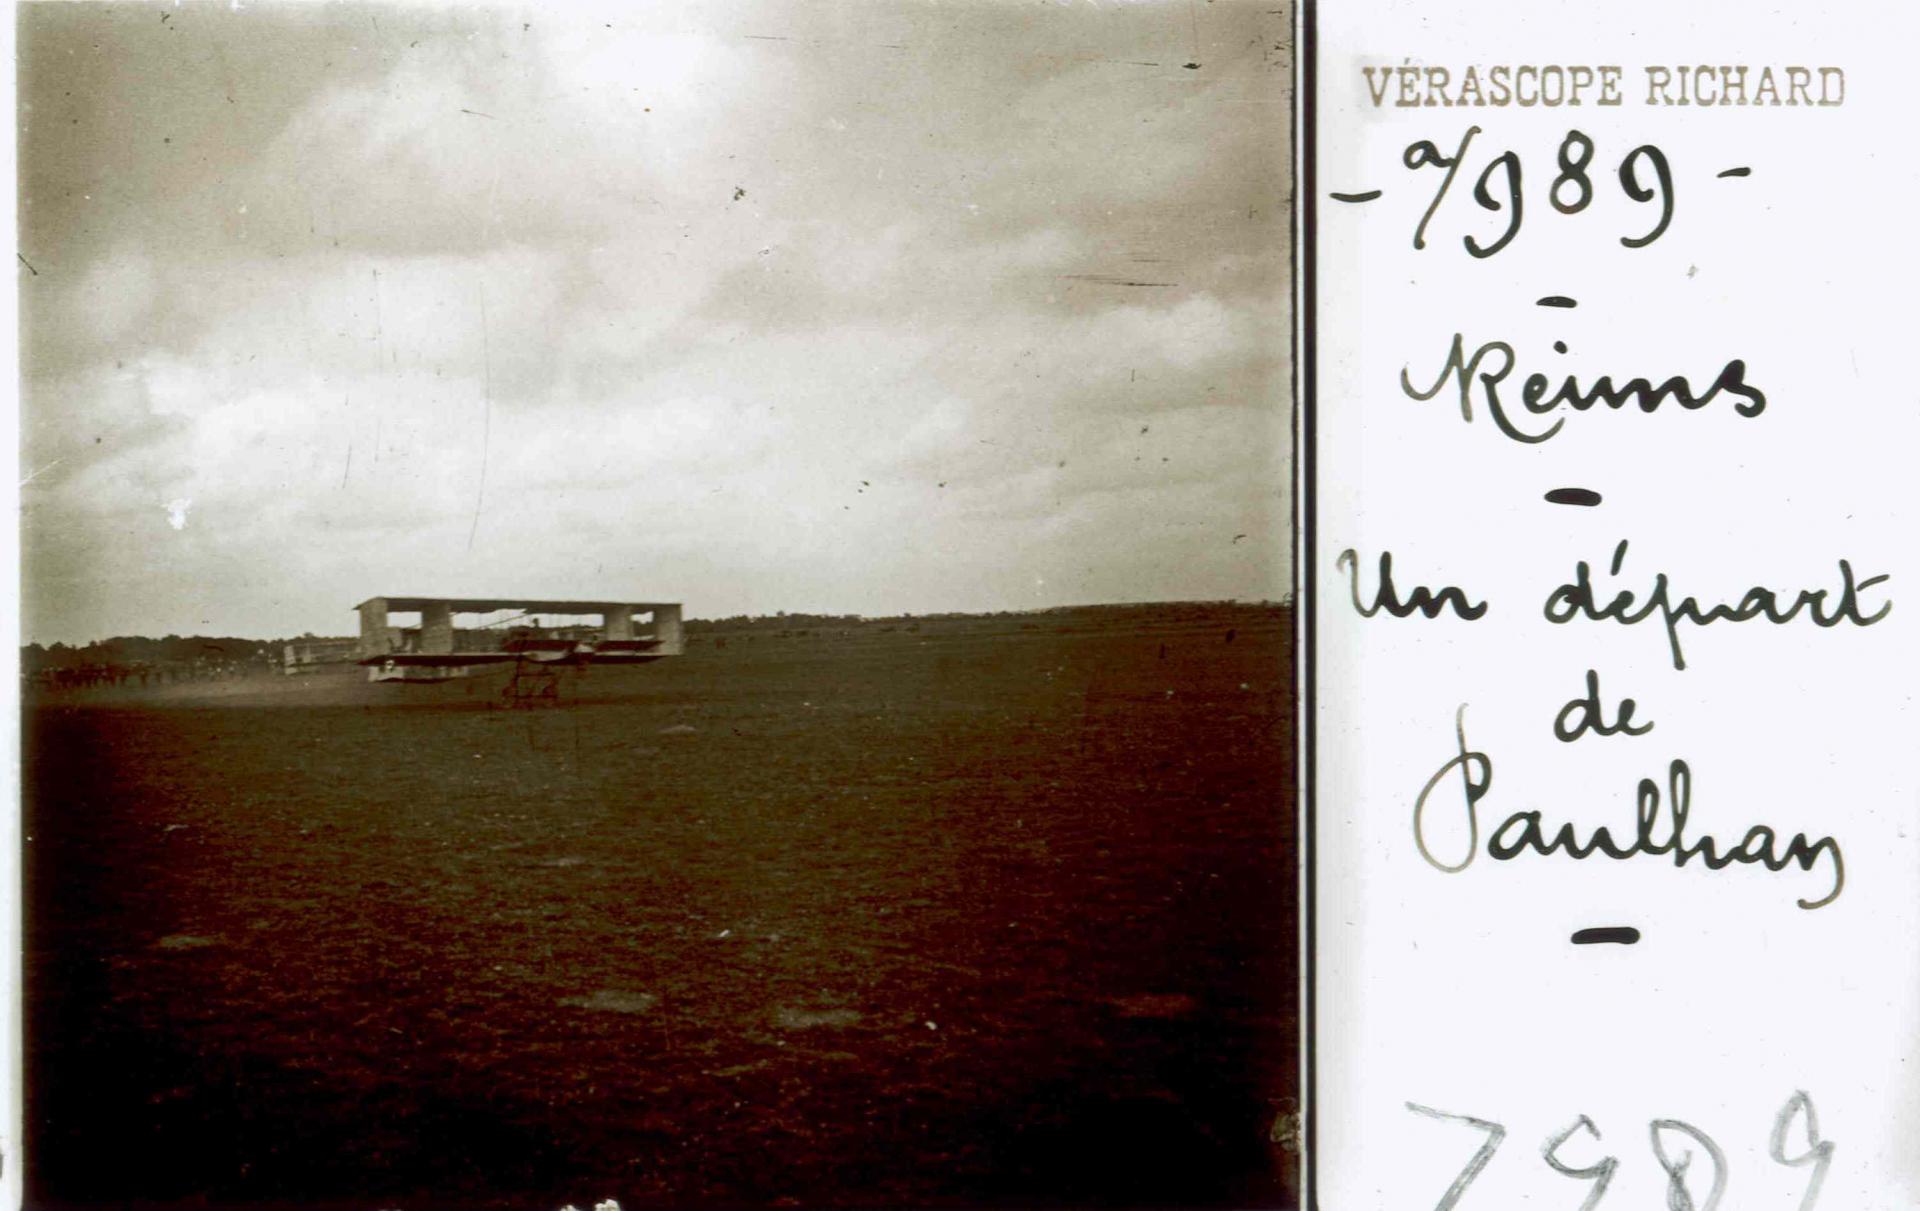 VÉRASCOPE RICHARD
- a/989 -
-
Reims
-
Un départ
de
Paulhan
-
7989